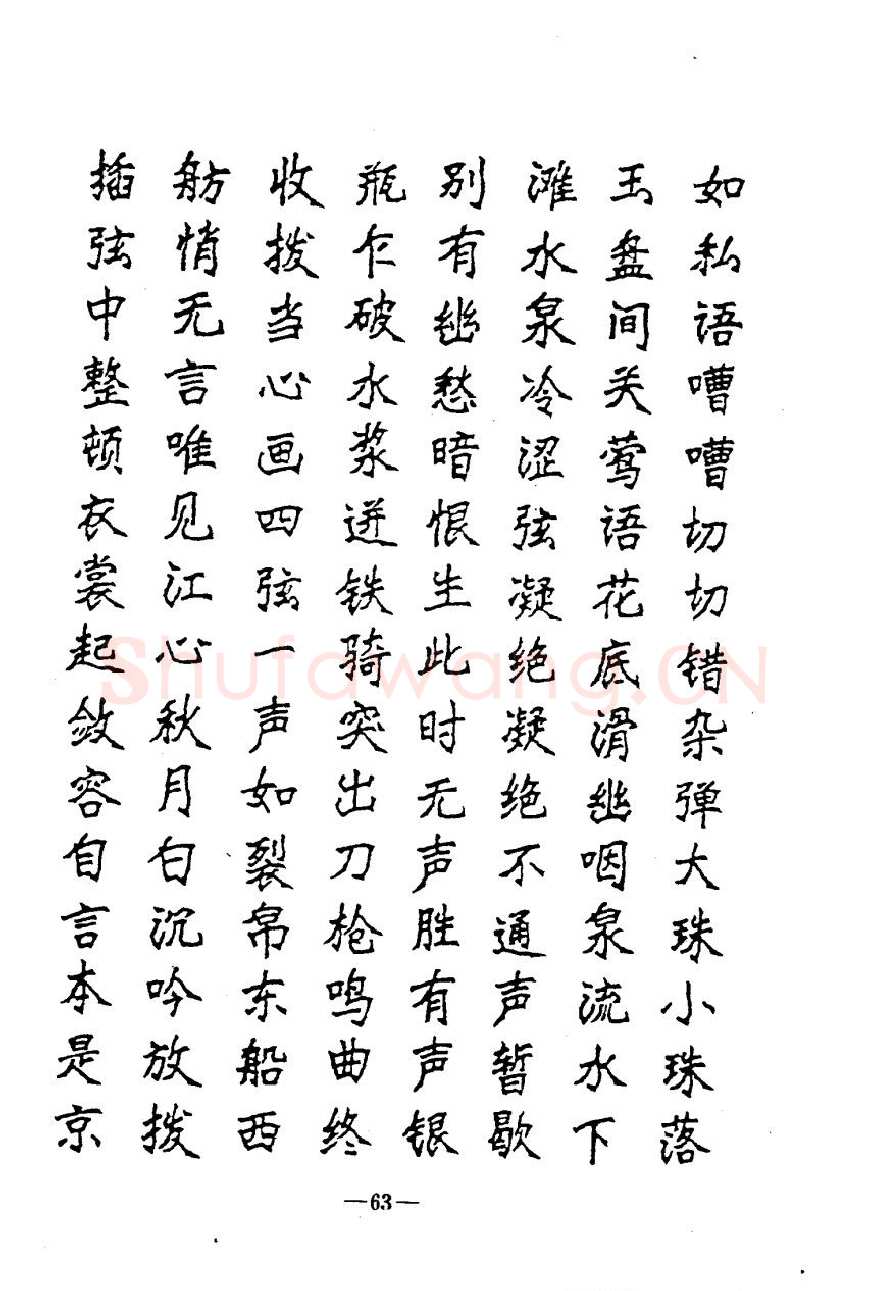 如私语嘈嘈切切错杂弹大珠小珠落
玉盘间关莺语花底滑幽咽泉流水下
滩水泉冷涩弦凝绝凝绝不通声暂歇
别有幽愁暗恨生此时无声胜有声银
瓶乍破水浆迸铁骑突出刀枪鸣曲终
收拨当心画四弦一声如裂帛东船西
舫悄无言唯见江心秋月白沉吟放拨
插弦中整顿衣裳起敛容自言本是京
—63—
Shufawang.CN